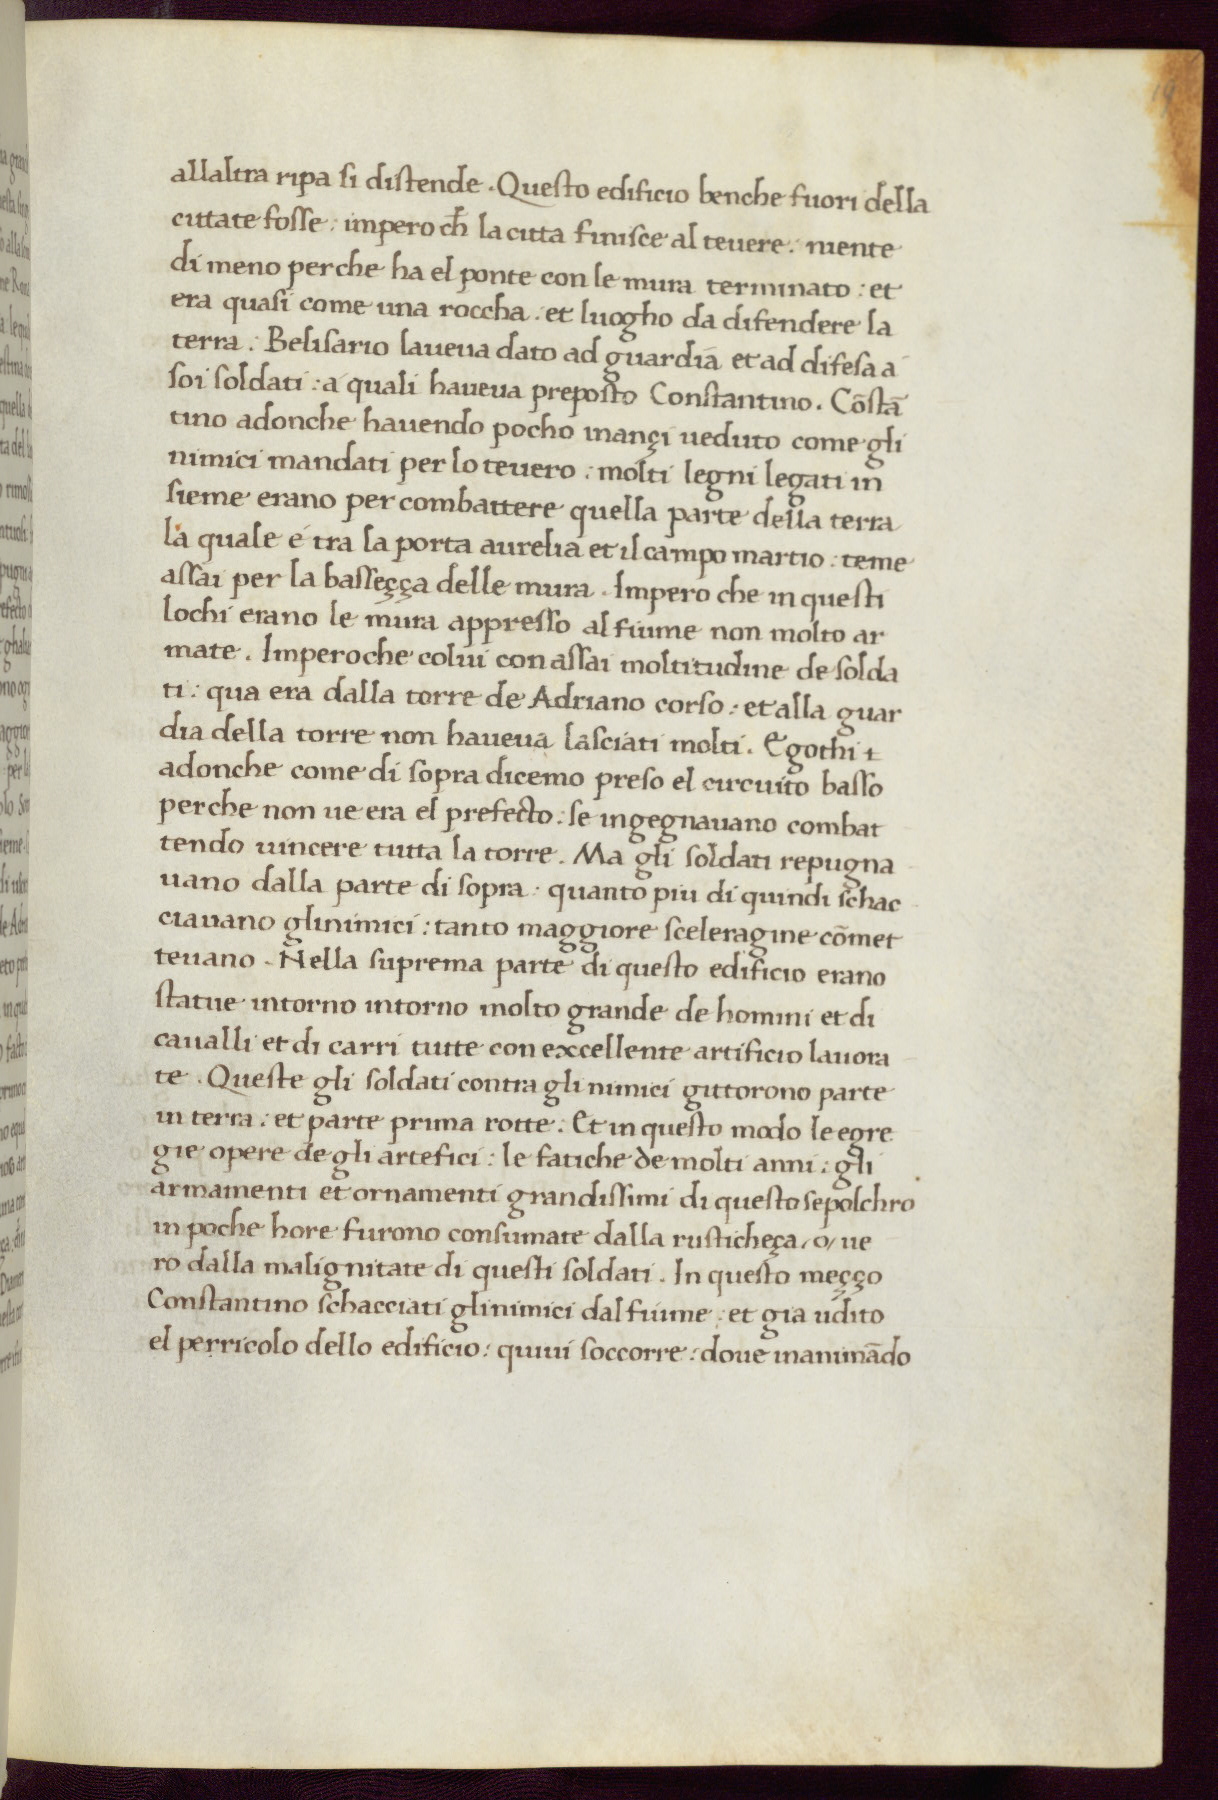 allaltra ripa si distende. Questo edificio benche fuori della
cittate fosse: impero ch̄ la citta finisce al teuere: niente
di meno perche ha el ponte con le mura terminato: et
era quasi come una roccha. et luogho da difendere la
terra. Belisario laueua dato ad guardia et ad difesa a
soi soldati: a quali haueua preposto Constantino. Cōstā
tino adonche hauendo pocho inançi ueduto come gli
nimici mandati per lo teuero: molti legni legati in
sieme erano per combattere quella parte della terra
la quale é tra la porta aurelia et il campo martio: teme
assai per la basseçça delle mura. Impero che in questi
lochi erano le mura appresso al fiume non molto ar
mate. Imperoche colui con assai moltitudine de solda
ti: qua era dalla torre de Adriano corso: et alla guar
dia della torre non haueua lasciati molti. E gothi
adonche come di sopra dicemo preso el circuito basso
perche non ue era el prefecto: se ingegnauano combat
tendo uincere tutta la torre. Ma gli soldati repugna
uano dalla parte di sopra: quanto piu di quindi schac
ciauano glinimici: tanto maggiore sceleragine cōmet
teuano. Nella suprema parte di questo edificio erano
statue intorno intorno molto grande de homini et di
caualli et di carri tutte con excellente artificio lauora
te. Queste gli soldati contra gli nimici gittorono parte
in terra: et parte prima rotte. Et in questo modo le egre
gie opere de gli artefici: le fatiche de molti anni: gli
armamenti et ornamenti grandissimi di questo sepolchro
in poche hore furono consumate dalla rusticheça/o/ue
ro dalla malignitate di questi soldati. In questo meçço
Constantino schacciati glinimici dal fiume: et gia udito
el perricolo dello edificio: quiui soccorre: doue inanimādo